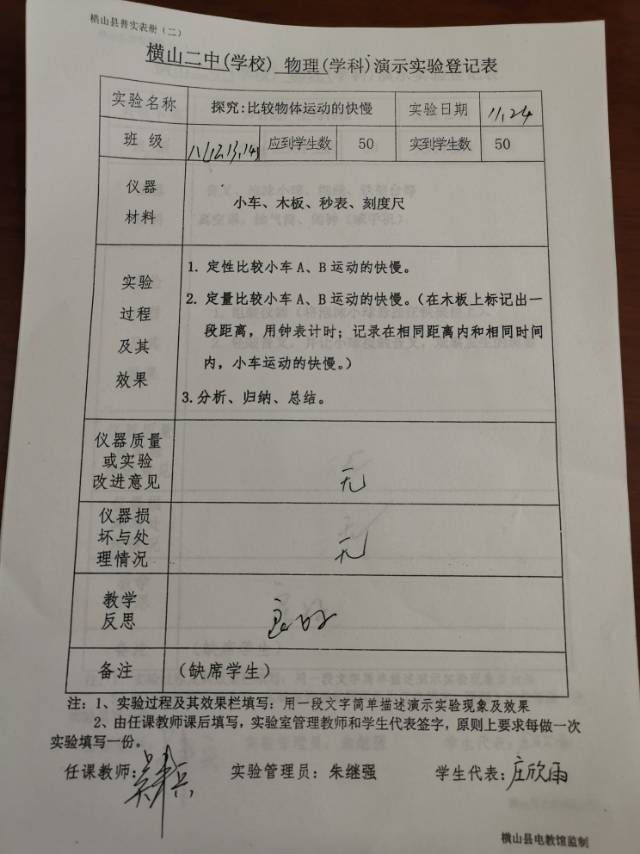 横山县普实表册（二）
横山二中(学校) 物理(学科)演示实验登记表
实验名称 探究：比较物体运动的快慢 实验日期 11,24
班 级 应到学生数 50 实到学生数 50
仪器
材料
小车、木板、秒表、刻度尺
实验
过程
及其
效果
1. 定性比较小车 A、B 运动的快慢。
2. 定量比较小车 A、B 运动的快慢。（在木板上标记出一
段距离，用钟表计时；记录在相同距离内和相同时间
内，小车运动的快慢。）
3.分析、归纳、总结。
仪器质量
或实验
改进意见
无
仪器损
坏与处
理情况
无
教学
反思
良好
备注 （缺席学生）
注：1、实验过程及其效果栏填写：用一段文字简单描述演示实验现象及效果
2、由任课教师课后填写，实验室管理教师和学生代表签字，原则上要求每做一次
实验填写一份。
任课教师： 实验管理员：朱继强 学生代表：庄欣雨
横山县电教馆监制